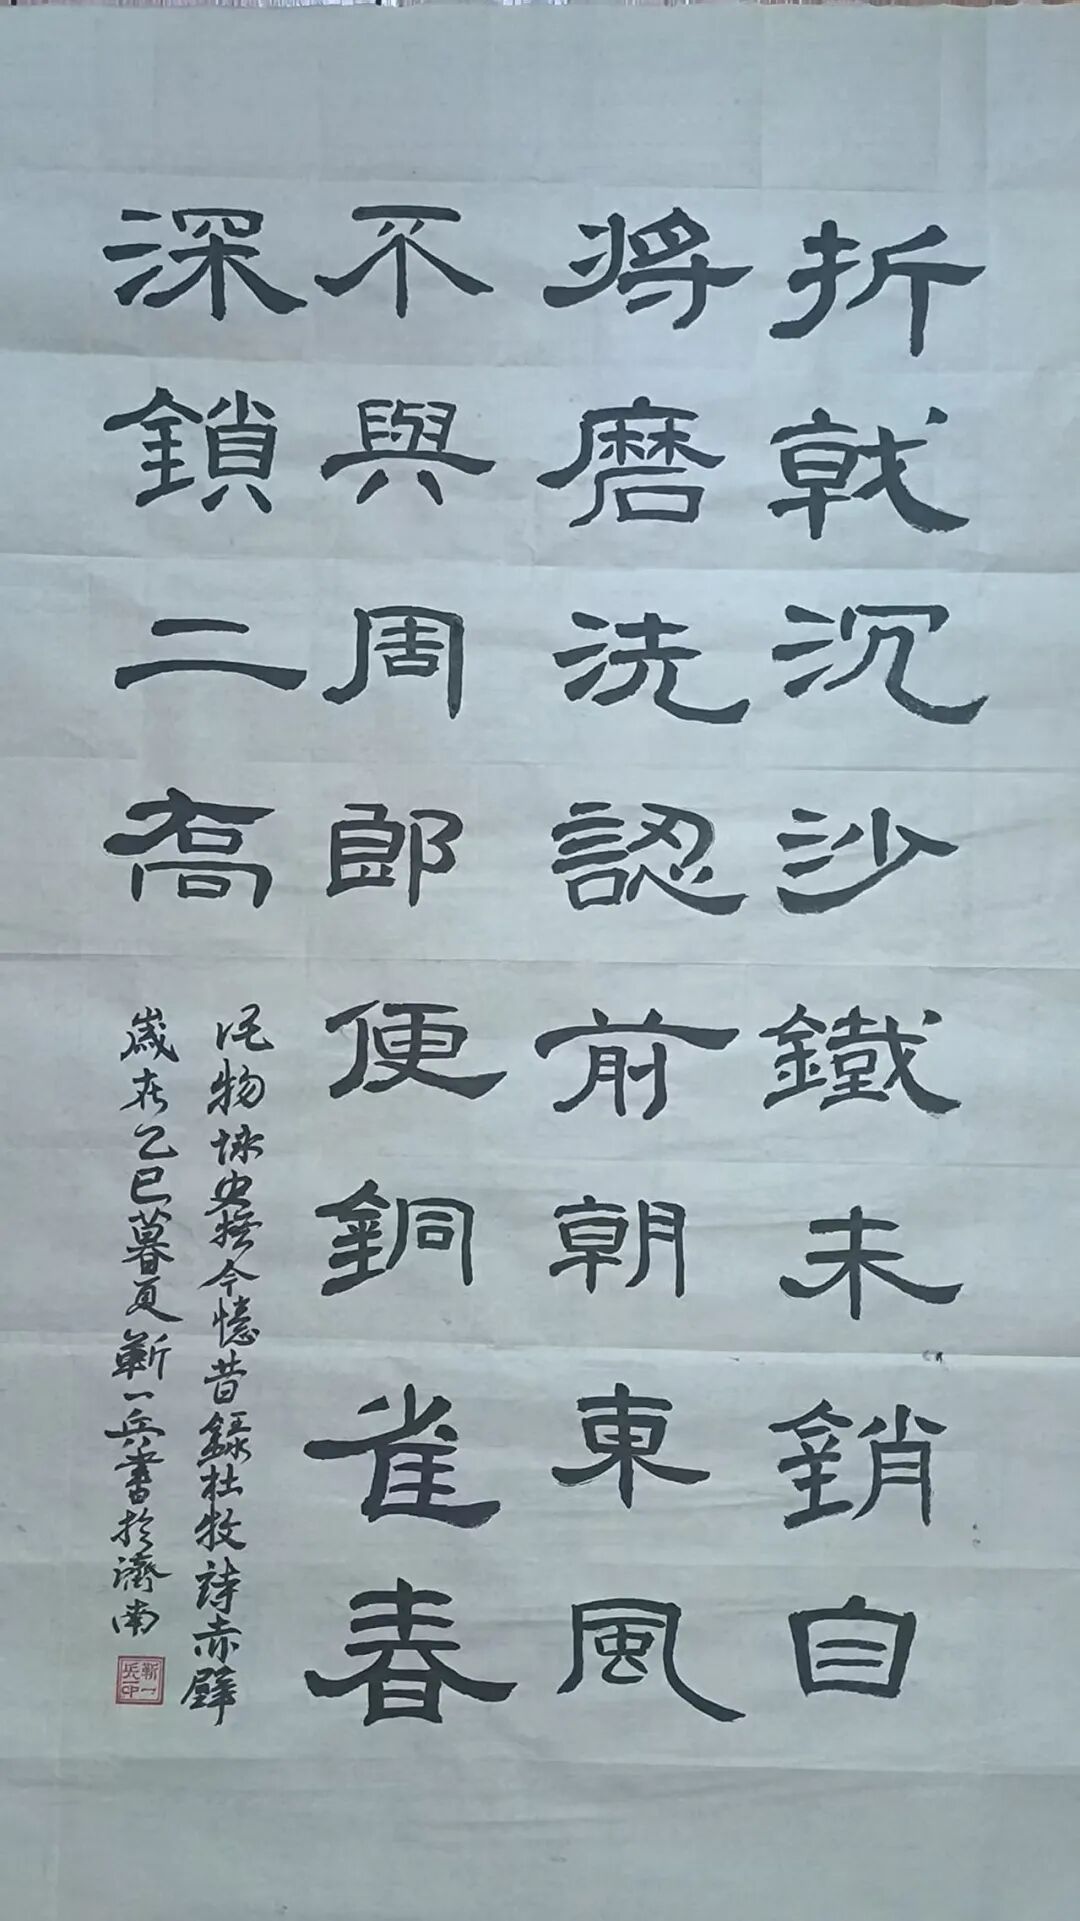 折戟沉沙鐵未銷自
將磨洗認前朝東風
不與周郎便銅雀春
深鎖二喬
託物詠史撫今憶昔錄杜牧詩赤壁
歲在乙巳暮夏靳一兵書於濟南
靳一兵印